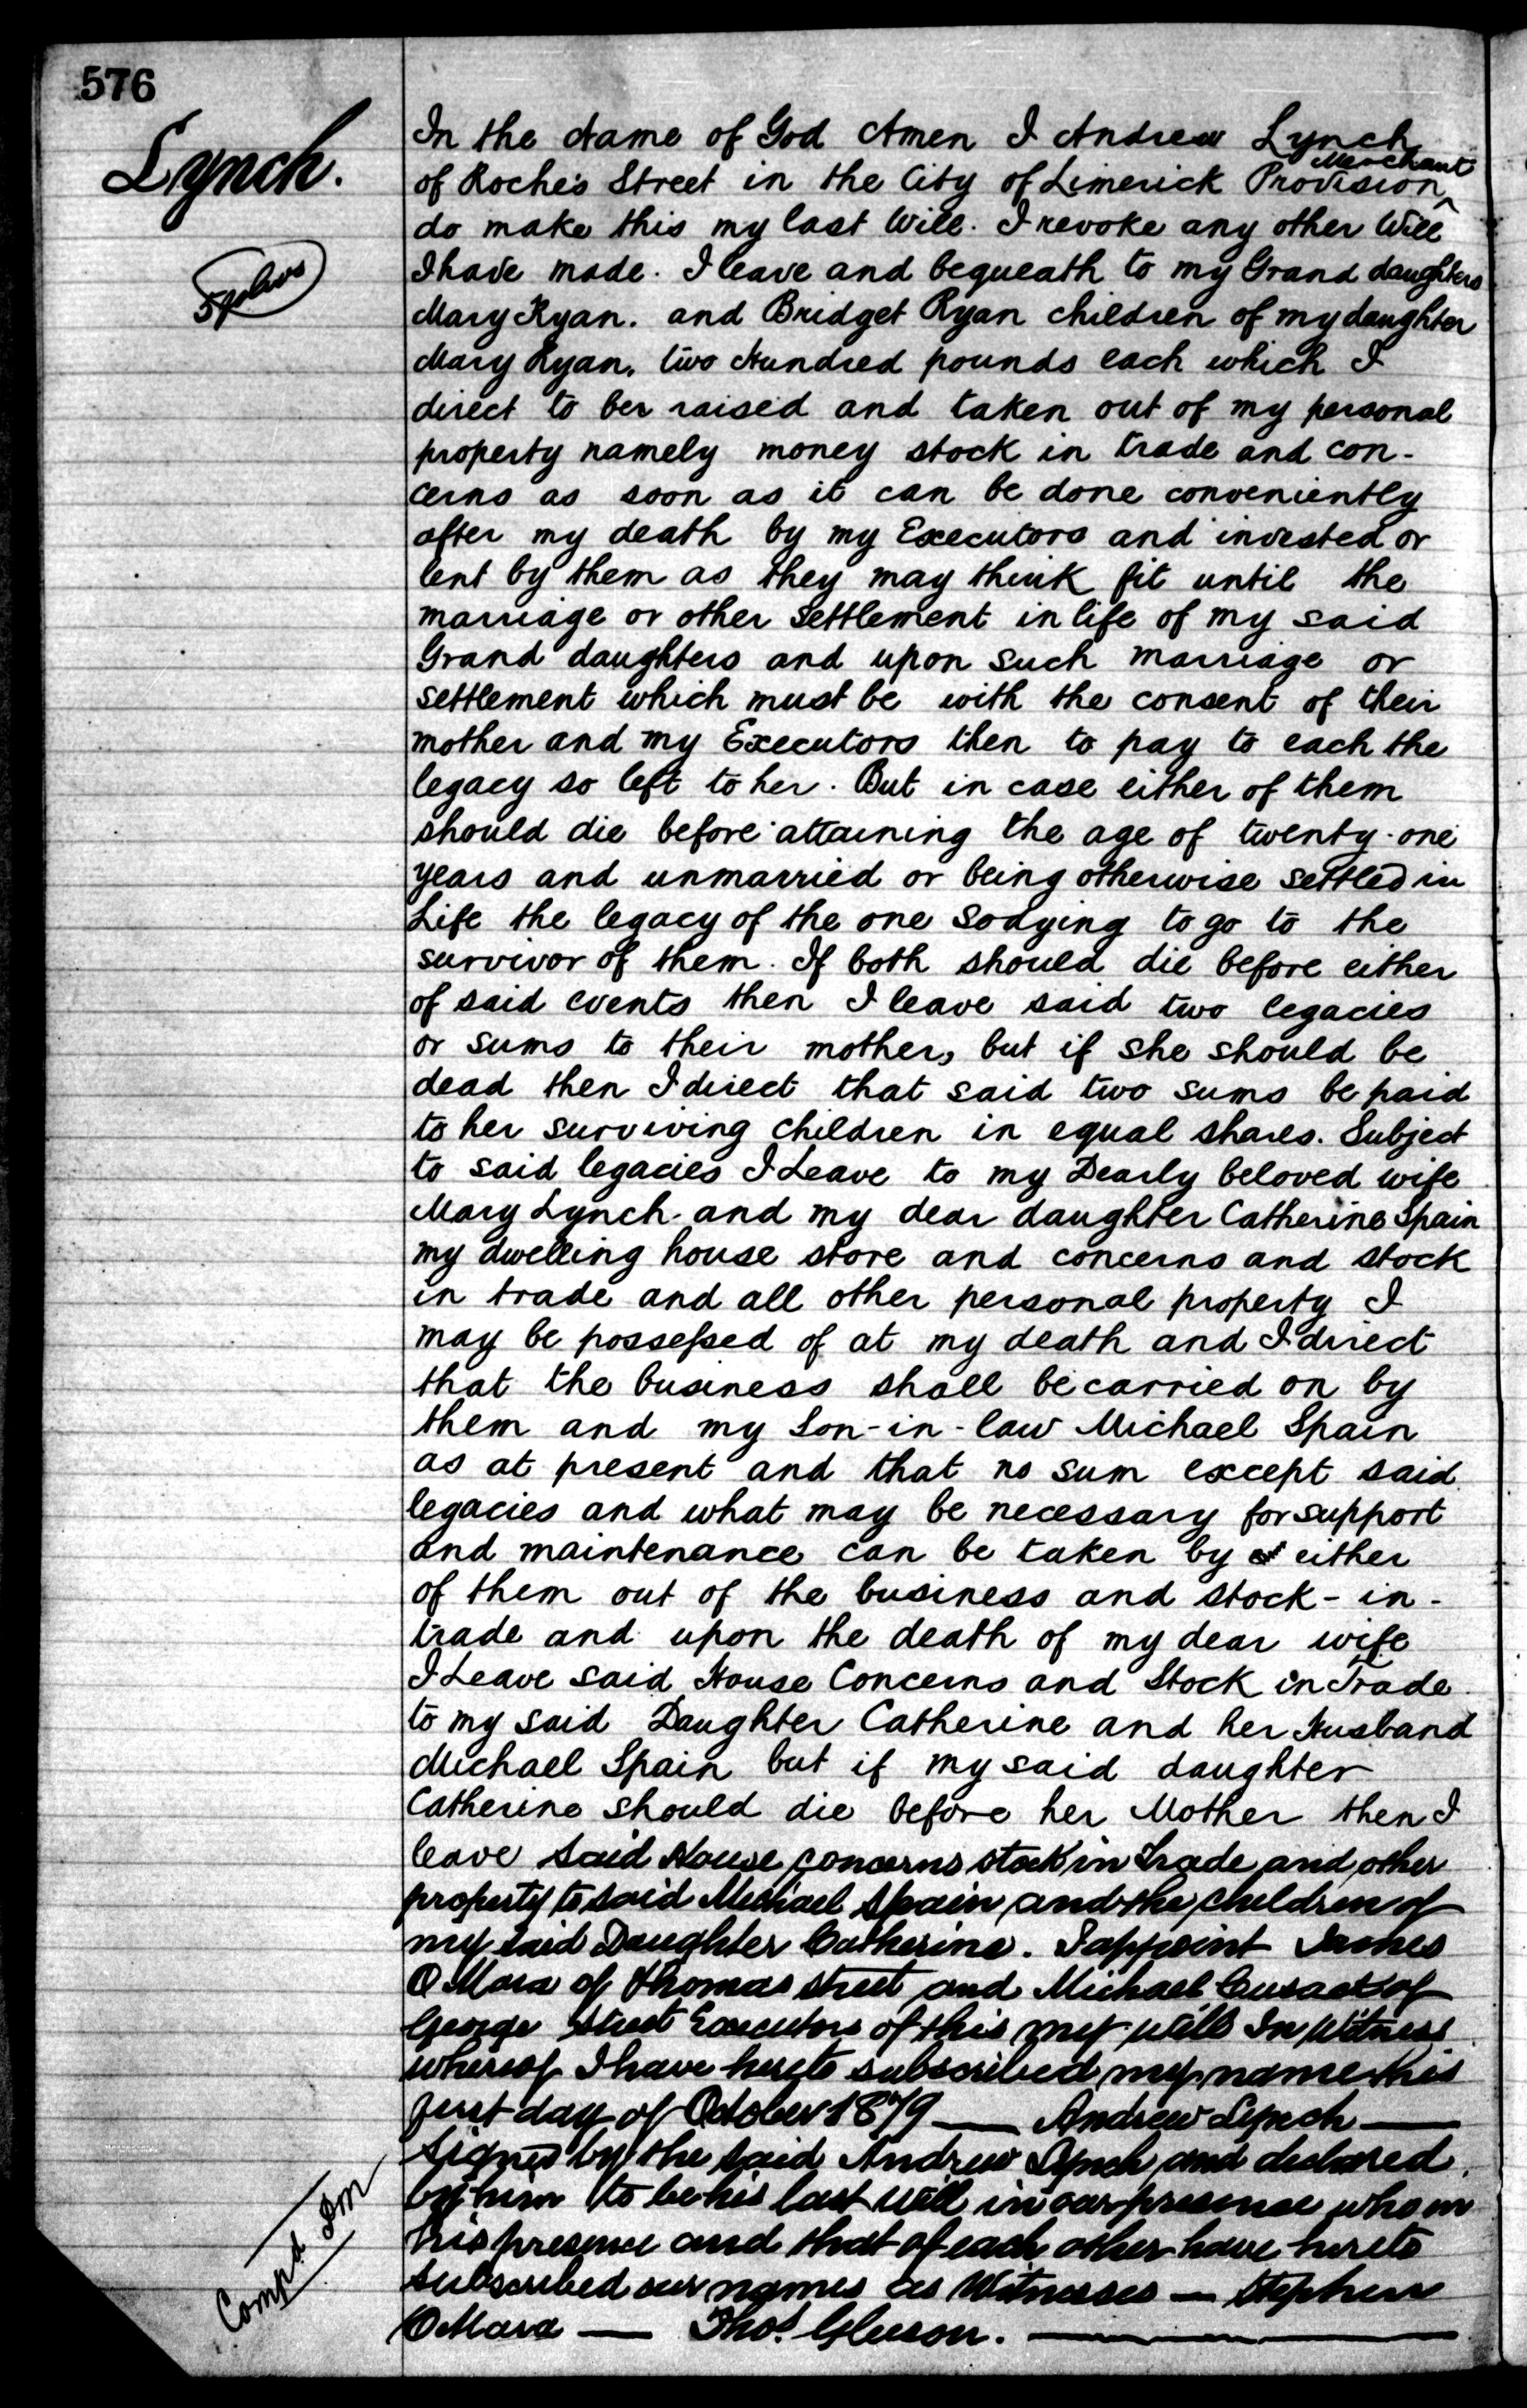 576
Lynch.
5 folios
In the Name of God Amen I Andrew Lynch
of Roche's Street in the City of Limerick Provision ^Merchant
do make this my last Will. I revoke any other Will
I have made. I leave and bequeath to my Grand daughters
Mary Ryan. and Bridget Ryan children of my daughter
Mary Ryan, two Hundred pounds each which I
direct to ber raised and taken out of my personal
property namely money stock in trade and con-
cerns as soon as it can be done conveniently
after my death by my Executors and invested or
lent by them as they may think fit until the
marriage or other Settlement in life of my said
Grand daughters and upon such marriage or
settlement which must be with the consent of their
mother and my Executors then to pay to each the
legacy so left to her. But in case either of them
should die before attaining the age of twenty-one
years and unmarried or being otherwise settled in
Life the legacy of the one so dying to go to the
survivor of them. If both should die before either
of said events then I leave said two legacies
or sums to their mother, but if she should be
dead then I direct that said two sums be paid
to her surviving children in equal shares. Subject
to said legacies I Leave to my Dearly beloved wife
Mary Lynch and my dear daughter Catherine Spain
my dwelling house store and concerns and stock
in trade and all other personal property I
may be possessed of at my death and I direct
that the business shall be carried on by
them and my Son-in-law Michael Spain
as at present and that no sum except said
legacies and what may be necessary for support
and maintenance can be taken by either
of them out of the business and stock-in-
trade and upon the death of my dear wife
I Leave said House Concerns and Stock in Trade
to my said Daughter Catherine and her Husband
Michael Spain but if my said daughter
Catherine should die before her Mother then I
leave said House concerns stock in Trade and other
property to said Michael Spain and the children of
my said Daughter Catherine. I appoint James
O'Mara of Thomas street and Michael Cusack of
George Street Executors of this my will In Witness
whereof I have hereto subscribed my name this
first day of October 1879 — Andrew Lynch —
Signed by the said Andrew Lynch and declared
by him to be his last will in our presence who in
his presence and that of each other have hereto
subscribed our names as Witnesses — Stephen
O'Mara — Thos. Gleeson. —
Compd Im